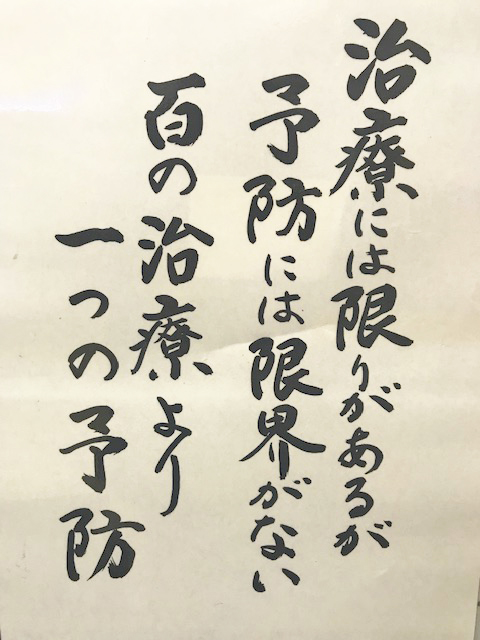 治療には限りがあるが
予防には限界がない
百の治療より
一つの予防